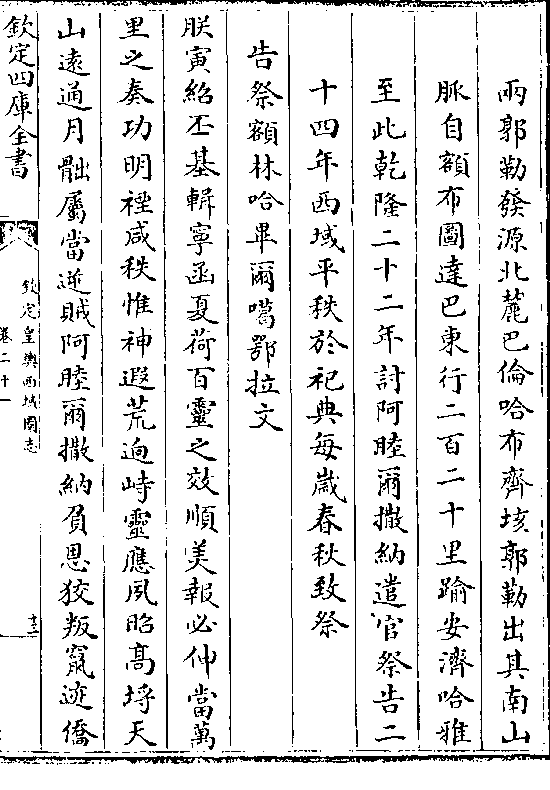 兩郭勒發源北麓巴倫哈布齊垓郭勒出其南山
脈自額布圖達巴東行二百二十里踰安濟哈雅
至此乾隆二十二年討阿睦爾撒納遣官祭告二
十四年西域平秩於祀典每歲春秋致祭
告祭額林哈畢爾噶鄂拉文
朕寅紹丕基輯寧函夏荷百靈之效順美報必伸當萬
里之奏功明禋咸秩惟神遐荒迥峙靈應夙昭高埒天
山遠通月𦙶屬當逆賊阿睦爾撒納負恩狡叛竄迹僑
欽定四庫全書
欽定皇輿西域圖志
卷二十一
十三